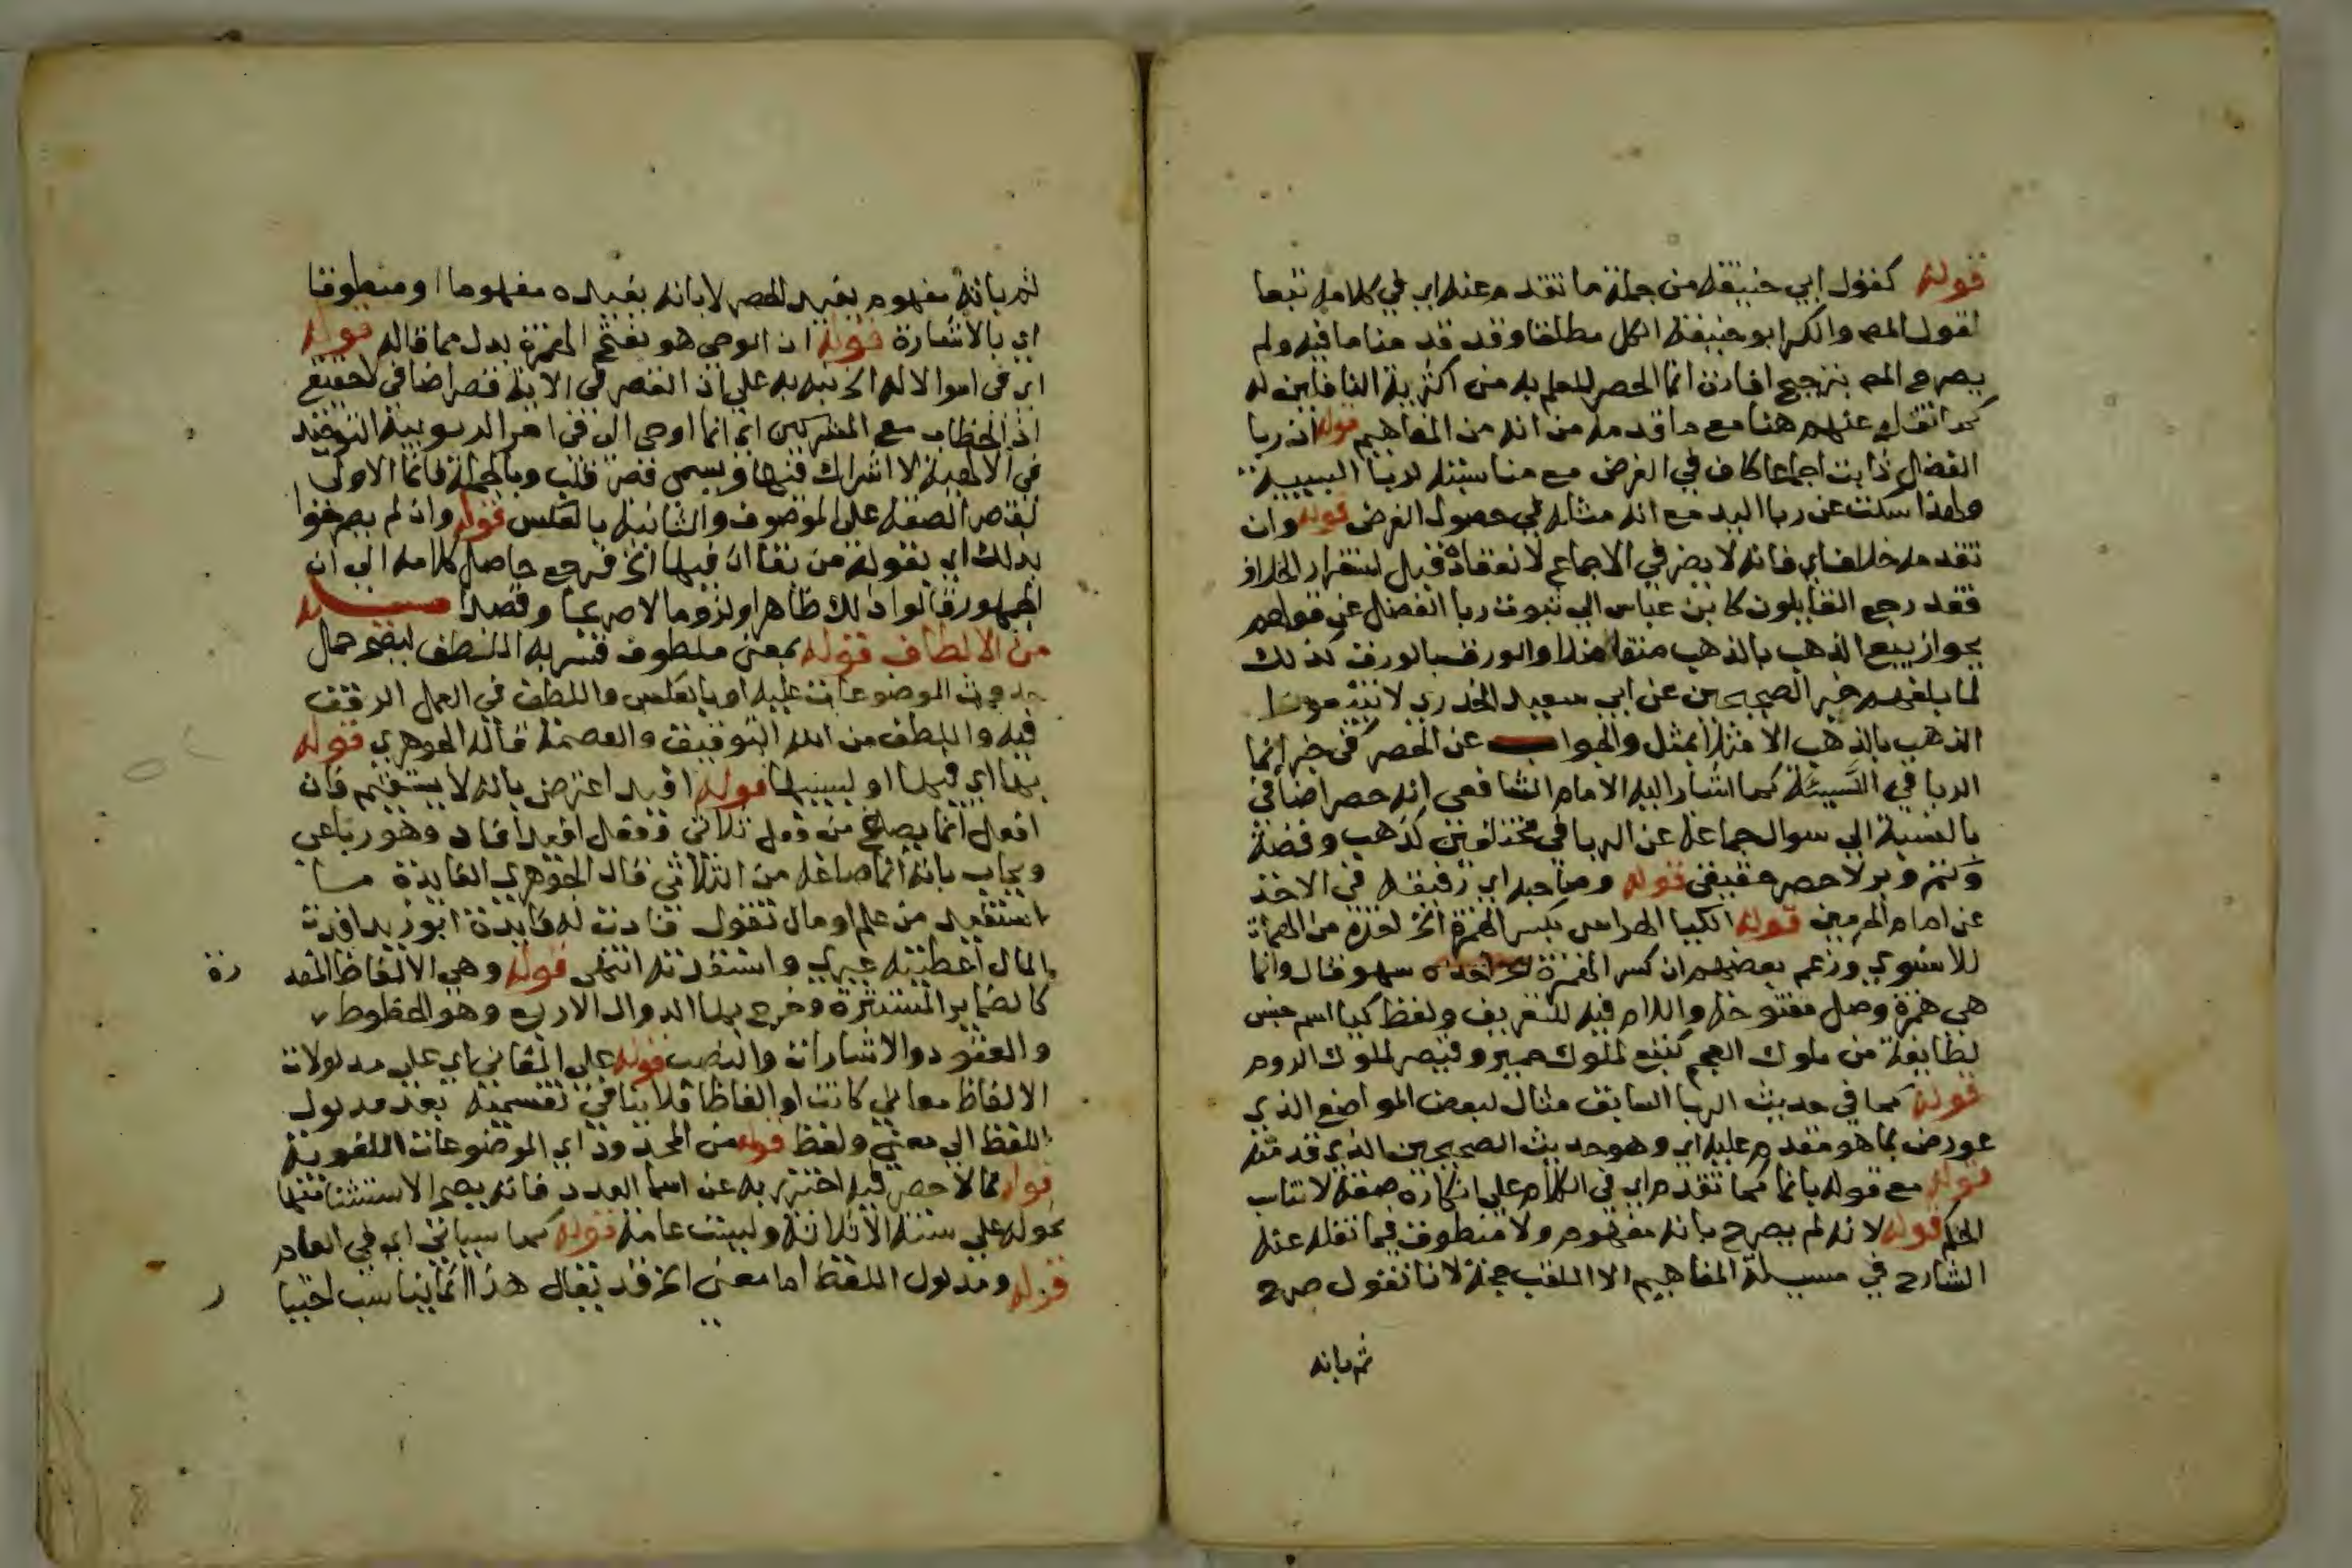 قوله كقول ابي حنيفة من جملة ما تقدم عنه اي في كلامه تبعا
لقول المص وانكر ابو حنيفة الكل مطلقا وقد قدمنا ما فيه ولم
يصرح المص بترجيح افادة انما الحصر للعلم به من اكثرية القائلين له
كما نقله عنهم هنا مع ما قدمه من انه من المفاهيم قوله ان ربا
الفضل ثابت اجماعا كاف في الغرض مع مناسبته لربا النسيئة
ولهذا سكت عن ربا اليد مع انه مثله في حصول الغرض قوله وان
تقدمه خلاف اي فانه لا يضر في الاجماع لانعقاده قبل استقرار الخلاف
فقد رجع القايلون كابن عباس الي ثبوت ربا الفضل عن قولهم
بجواز بيع الذهب بالذهب متفاضلا والورق بالورق كذلك
لما بلغهم خبر الصحيحين عن ابي سعيد الخدري لا تبيعوا
الذهب بالذهب الا مثلا بمثل والجواب عن الحصر في خبر انما
الربا في النَّسيئة كما اشار اليه الامام الشافعي انه حصر اضافي
بالنسبة الي سوال جماعة عن الربا في مختلفين كذهب وفضة
وتمر وبر لا حصر حقيقي قوله وصاحبه اي رفيقه في الاخذ
عن امام الحرمين قوله الكيا الهراسي بكسر الهمزة الخ لعزه من المهمات
للاسنوي وزعم بعضهم ان كسر الهمزة سهو قال وانما
هي همزة وصل مفتوحة واللام فيه للتعريف ولفظ كيا اسم جنس
لطايفة من ملوك العجم كتبع لملوك حمير وقيصر لملوك الروم
قوله كما في حديث الربا السابق مثال لبعض المواضع الذي
عورض بما هو مقدم عليه اي وهو حديث الصحيحين الذي قدمته
قوله مع قوله بانما كما تقدم اي في الكلام علي انكاره صفة لا تناسب
الحكم قوله لانه لم يصرح بانه مفهوم ولا منطوق فيما نقله عنه
الشارح في مسيلة المفاهيم الا اللقب حجة لانا نقول صرح
ثم بانه
ثم بانه مفهوم يفيد الحصر لا بانه يفيده مفهوما او منطوقا
اي بالاشارة قوله ان الوحي هو بفتح الهمزة بدل مما قاله قوله
اي في امر الاله الخ نبه به علي ان القصر في الاية قصر اضافي لا حقيقي
اذ الخطاب مع المشركين اي انما اوحي الي في امر الربوبية التوحيد
في الالهية لا اشراك فيها ويسمي قصر قلب وبالجملة فانما الاولي
لقصر الصفة علي الموصوف والثانية بالعكس قوله وان لم يصرحوا
بذلك اي بقوله من بقا ان فيها الخ فرجع حاصل كلامه الي ان
الجمهور قالوا ذلك ظاهرا ولزوما لا صريحا وقصدا مسيلة
من الالطاف قوله بمعني ملطوف فسر به اللطف ليصح حمل
حدوث الموضوعات عليه او بالعكس واللطف في العمل الرفق
فيه واللطف من الله التوفيق والعصمة قاله الجوهري قوله
بها اي فيها او بسببها قوله افيد اعترض بانه لا يستقيم فان
افعل انما يصاغ من فعل ثلاثي وفعل افيد افاد وهو رباعي
ويجاب بانه انما صاغه من الثلاثي قال الجوهري الفايدة ما
استفيد من علم او مال تقول فادت له فايدة ابو زيد افدت
المال اعطيته غيري واستفدته انتهي قوله وهي الالفاظ المقد رة
كالضماير المستترة وخرج بها الدوال الاربع وهو الخطوط
والعقود والاشارات والنصب قوله علي المعاني اي علي مدلولات
الالفاظ معاني كانت او الفاظا فلا ينافي تقسيمه بعد مدلول
اللفظ الي معني ولفظ قوله من المحدود اي الموضوعات اللغوية
قوله مما لا حصر فيه احترز به عن اسما العدد فانه يصح الاستثنا منها
نحو له علي ستة الا ثلاثة وليست عامة قوله كما سياتي اي في العام
قوله ومدلول اللفظ اما معني الخ قد يقال هذا انما يناسب اختيا ر